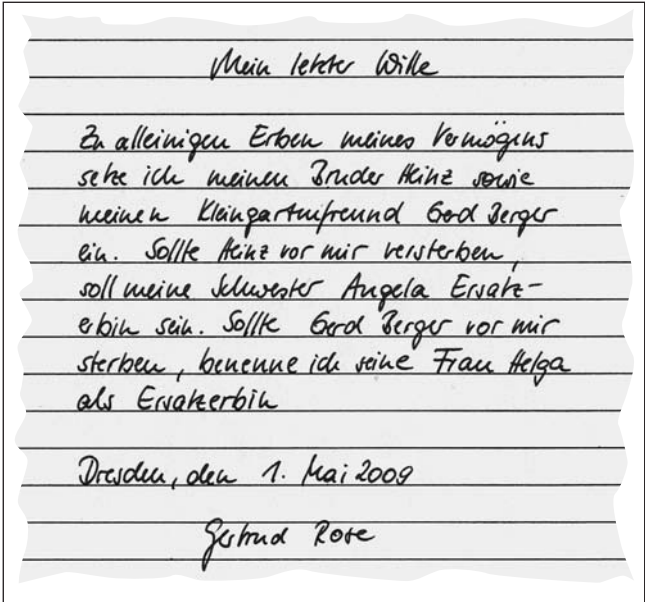 Mein letzter Wille
Zu alleinigen Erben meines Vermögens
setze ich meinen Bruder Heinz sowie
meinen Kleingartenfreund Gerd Berger
ein. Sollte Heinz vor mir versterben,
soll meine Schwester Angela Ersatz-
erbin sein. Sollte Gerd Berger vor mir
sterben, benenne ich seine Frau Helga
als Ersatzerbin
Dresden, den 1. Mai 2009
Gertrud Rose